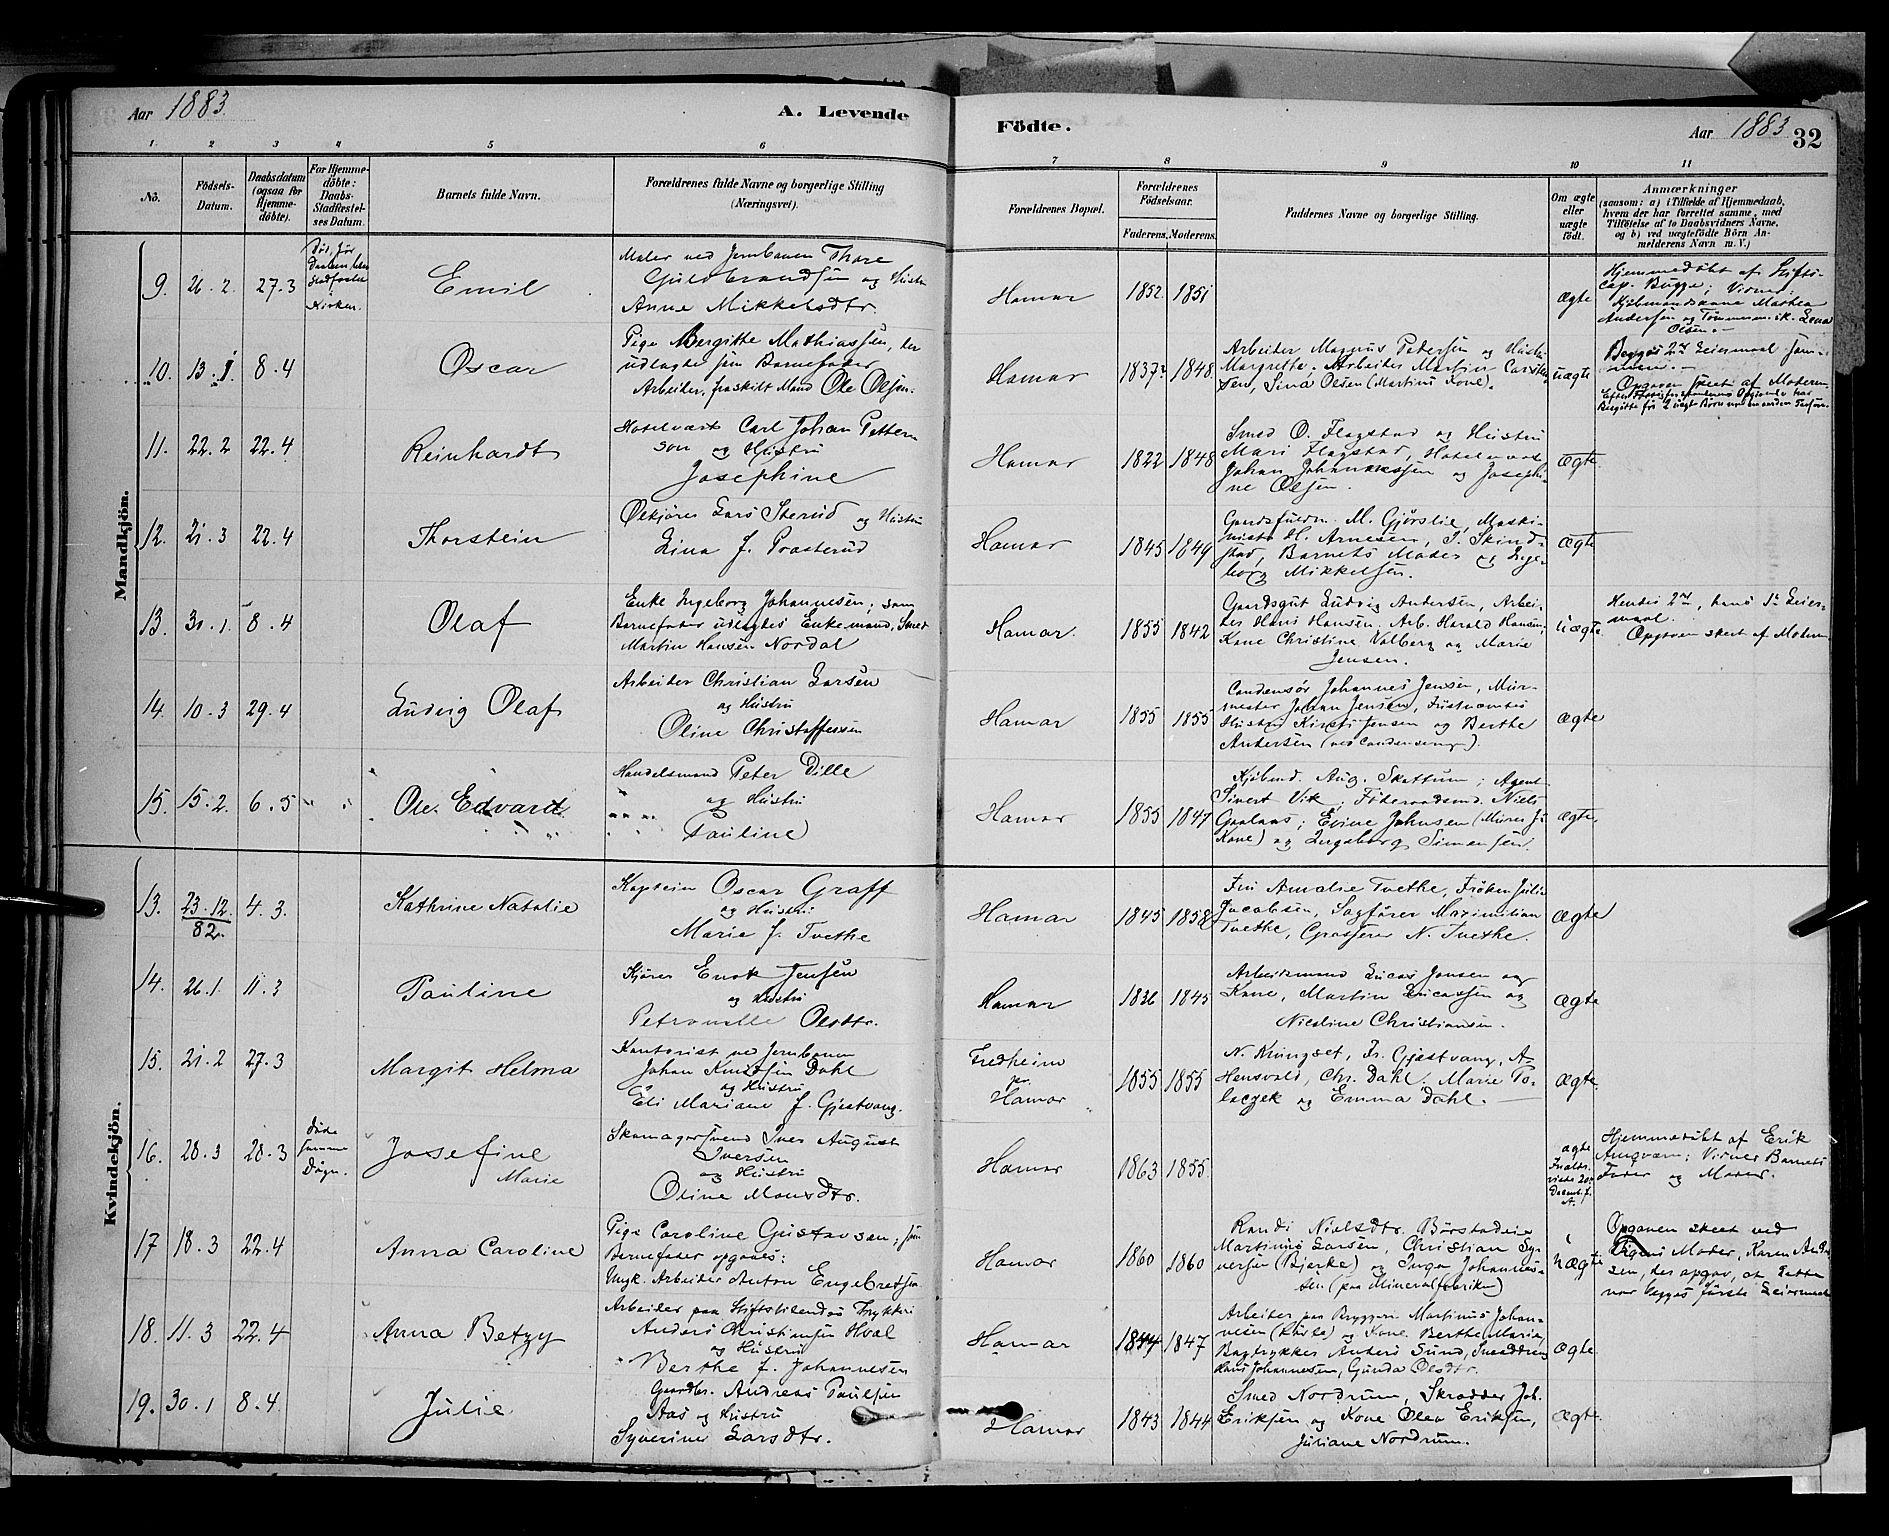 Aar 1883.
A. Levende
Födte.
Aar 1883
32
1.
2
3
4
5
6
7
8
9
10
11
No.
Födsels-
Datum.
Daabsdatum
(ogsaa for
Hjemme-
döbte).
For Hjemme-
döbte:
Daabs-
Stadfæstel-
ses Datum.
Barnets fulde Navn.
Forældrenes fulde Navne og borgerlige Stilling
(Næringsvei).
Forældrenes Bopæl.
Forældrenes
Födselsaar.
Faderens. Moderens.
Faddernes Navne og borgerlige Stilling.
Om ægte
eller
uægte
födt.
Anmærkninger
(saasom: a) i Tilfælde af Hjemmedaab,
hvem der har forrettet samme, med
Tilföielse af to Daabsvidners Navne,
og b) ved uægtefödte Börn An-
melderens Navn m. V.)
Mandkjön.
9. 26.2 27.3
Död, før
Kirken.
Emil
Maler ved Jernbanen Thore
Guldbrandsen og Hustru
Anne Mikkelsdtr.
Hamar 1852. 1851
ægte
Hjemmedöbt af Stifts-
cap. Bugge; Vidner:
Andersen og Tömmerm.sk. Lena
Olsen.
10. 13.1 8.4
Oscar
Pige Bergitte Mathiassen, der
udlagde som Barnefader
Arbeider, fraskilt Mand Ole Olsen.
Hamar 1837? 1848.
Arbeider Magnus Petersen og Hustru
Margrethe, Arbeider Martin Carlsen
sen, Lina Olsen (Martins Kone).
uægte
Begges 2det Leiermaal sam-
men.
Opgaven skeet af Moderen.
11. 22.2 22.4
Reinhardt
Hotelvært Carl Johan Petter-
son og Hustru
Josephine
Hamar 1822 1848
Smed O. Flagstad og Hustru
Mari Flagstad, Hotelvært
Johan Johannessen og Josephi-
ne Olsen.
ægte
12. 21.3 22.4
Thorstein
Ölkjörer Lars Sterud og Hustru
Lina J. Prosterud
Hamar 1845 1849
Gaardsfuldm. M. Gjörslie, Maski-
nist H. Arnesen, J. Skind-
stad, Barnets Moder og Inge-
borg Mikkelsen.
ægte
13. 30.1. 8.4
Olaf
Enke Ingeborg Johannesen; som
Barnefader udlagdes Enkemand, Smed
Martin Hansen Nordal
Hamar. 1855 1842
Gaardsgut Ludvig Andersen, Arbei-
der Hans Hansen, Arb. Harald Hansen,
Kone Christine Valberg og Marie
Jensen.
uægte
Hendes 2det, hans 1ste Leier-
maal.
Opgaven skeet af Moderen
14. 10.3 29.4
Ludvig Olaf
Arbeider Christian Larsen
og Hustru
Oline Christoffersen
Hamar 1855 1855
Condensör Johannes Jensen, Mur-
mester Johan Jensen, Sidstnævntes
Hustru Kirsti Jensen og Berthe
Andersen (ved Condenseringen).
ægte
15. 15.2. 6.5
Ole Edvard
Handelsmand Peter Dille
og Hustru
Pauline
Hamar 1855 1847
Kjöbmd. Aug. Skattum; Agent
Sivert Vik; Föderaadsmd. Niels
Graaas; Eline Johnsen (Murer J's
Kone) og Ingeborg Simensen.
ægte.
Kvindekjön.
13. 23.12.82. 4.3.
Kathrine Natalie
Kaptein Oscar Graff
og Hustru
Marie f. Tvethe
Hamar 1845 1858
Fru Amalie Tvethe, Fröken Julie
Jacobsen, Sagförer Maximilian
Tvethe, Grosserer N. Tvethe.
ægte
14. 26.1. 11.3
Pauline
Kjörer Enok Jensen
og Hustru
Petronelle Olsdtr.
Hamar 1836 1845
Arbeidsmand Lucas Jansen og
Kone, Martin Lucassen og
Nicoline Christiansen.
ægte
15. 21.2 27.3
Margit Helma
Kontorist ved Jernbanen
Johan Knudsen Dahl
og Hustru
Eli Mariane f. Gjestvang.
Fredheim
pr.
Hamar
1855 1855
N. Kringset, Fr. Gjestvang, A.
Hensvald, Chr. Dahl, Marie To-
og Emma Dahl.
ægte.
16. 20.3 20.3
Döde
samme
Dögn.
Josefine
Marie
Skomagersvend Iver August
Iversen
og Hustru
Oline Monsdtr.
Hamar 1863 1855.
ægte
Hjemmedöbt af Erik
Amqvam; Vidner Barnets
Fader og Moder.
17 18.3 22.4
Anna Caroline
Pige Caroline Gustavsen; som
Barnefader opgaves:
Ungk. Arbeider Anton Engebretsen
Hamar 1860 1860
Randi Nielsdtr. Börstadeie
Martinus Larsen, Christian Sy-
versen (Bjerke) og Inga Johannes-
sen (paa Mineralfabriken)
uægte
Opgaven skeet ved
Pigens Moder, Karen Ander-
sen, der opgav, at dette
var begges förste Leiermaal
18. 11.3 22.4
Anna Betzy
Arbeider paa Stiftstidendes Trykkeri
Anders Christiansen Hval
og Hustru
Berthe f. Johannesen
Hamar 1844 1847
Arbeider paa Bryggeri Martinus Johan-
nesen og Kone Berthe Marie,
Bogtrykker Anders Sund, Smeddreng
Hans Johannesen, Gunda Olsdtr.
ægte
19. 30.1 8.4.
Julie
Gaardbr. Andreas Paulsen
Aas og Hustru
Syverine Larsdtr.
Hamar 1843 1844
Smed Nordrum, Skrædder Joh.
Eriksen og Kone Olea Eriksen,
Juliane Nordrum.
ægte.